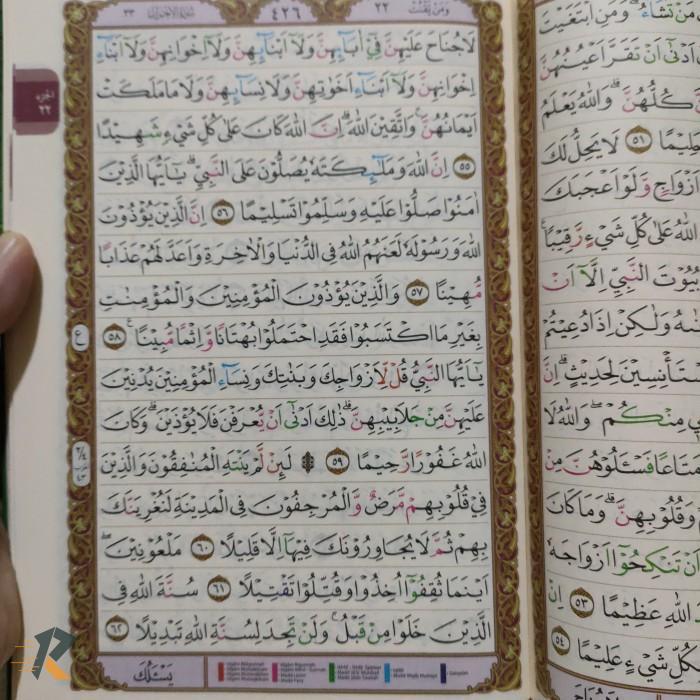 وَمَنْ يَّقْنُتْ ٢٢
٤٢٦
الجزء
٢٢
لَاجُنَاحَ عَلَيْهِنَّ فِيْٓ اٰبَاۤىِٕهِنَّ وَلَآ اَبْنَاۤىِٕهِنَّ وَلَآ اِخْوَانِهِنَّ وَلَآ اَبْنَاۤءِ
اِخْوَانِهِنَّ وَلَآ اَبْنَاۤءِ اَخَوٰتِهِنَّ وَلَا نِسَاۤىِٕهِنَّ وَلَا مَا مَلَكَتْ
اَيْمَانُهُنَّۚ وَاتَّقِيْنَ اللّٰهَ ۗاِنَّ اللّٰهَ كَانَ عَلٰى كُلِّ شَيْءٍ شَهِيْدًا
٥٥ اِنَّ اللّٰهَ وَمَلٰۤىِٕكَتَهٗ يُصَلُّوْنَ عَلَى النَّبِيِّۗ يٰٓاَيُّهَا الَّذِيْنَ
اٰمَنُوْا صَلُّوْا عَلَيْهِ وَسَلِّمُوْا تَسْلِيْمًا ٥٦ اِنَّ الَّذِيْنَ يُؤْذُوْنَ
اللّٰهَ وَرَسُوْلَهٗ لَعَنَهُمُ اللّٰهُ فِى الدُّنْيَا وَالْاٰخِرَةِ وَاَعَدَّ لَهُمْ عَذَابًا
مُّهِيْنًا ٥٧ وَالَّذِيْنَ يُؤْذُوْنَ الْمُؤْمِنِيْنَ وَالْمُؤْمِنٰتِ
بِغَيْرِ مَا اكْتَسَبُوْا فَقَدِ احْتَمَلُوْا بُهْتَانًا وَّاِثْمًا مُّبِيْنًا ࣖ ٥٨
ع
يٰٓاَيُّهَا النَّبِيُّ قُلْ لِّاَزْوَاجِكَ وَبَنٰتِكَ وَنِسَاۤءِ الْمُؤْمِنِيْنَ يُدْنِيْنَ
عَلَيْهِنَّ مِنْ جَلَابِيْبِهِنَّۗ ذٰلِكَ اَدْنٰىٓ اَنْ يُّعْرَفْنَ فَلَا يُؤْذَيْنَۗ وَكَانَ
اللّٰهُ غَفُوْرًا رَّحِيْمًا ٥٩ ۞ لَىِٕنْ لَّمْ يَنْتَهِ الْمُنٰفِقُوْنَ وَالَّذِيْنَ
فِيْ قُلُوْبِهِمْ مَّرَضٌ وَّالْمُرْجِفُوْنَ فِى الْمَدِيْنَةِ لَنُغْرِيَنَّكَ
بِهِمْ ثُمَّ لَا يُجَاوِرُوْنَكَ فِيْهَآ اِلَّا قَلِيْلًا ٦٠ مَلْعُوْنِيْنَۖ
اَيْنَمَا ثُقِفُوْٓا اُخِذُوْا وَقُتِّلُوْا تَقْتِيْلًا ٦١ سُنَّةَ اللّٰهِ فِى
الَّذِيْنَ خَلَوْا مِنْ قَبْلُ ۚوَلَنْ تَجِدَ لِسُنَّةِ اللّٰهِ تَبْدِيْلًا ٦٢
يَسْـَٔلُكَ
ادْنٰىٓ اَنْ تَقَرَّ اَعْيُنُهُنَّ
كُلُّهُنَّۗ وَاللّٰهُ يَعْلَمُ
حَلِيْمًا ٥١ لَا يَحِلُّ لَكَ
اَزْوَاجٍ وَّلَوْ اَعْجَبَكَ
اللّٰهُ عَلٰى كُلِّ شَيْءٍ رَّقِيْبًا
بُيُوْتَ النَّبِيِّ اِلَّآ اَنْ
وَلٰكِنْ اِذَا دُعِيْتُمْ
مُسْتَأْنِسِيْنَ لِحَدِيْثٍۗ اِنَّ
مِنْكُمْۖ وَاللّٰهُ لَا
مَتَاعًا فَسْـَٔلُوْهُنَّ مِنْ
وَقُلُوْبِهِنَّۗ وَمَا كَانَ
اَنْ تَنْكِحُوْٓا اَزْوَاجَهٗ
اللّٰهِ عَظِيْمًا ٥٣ اِنْ
بِكُلِّ شَيْءٍ عَلِيْمًا ٥٤